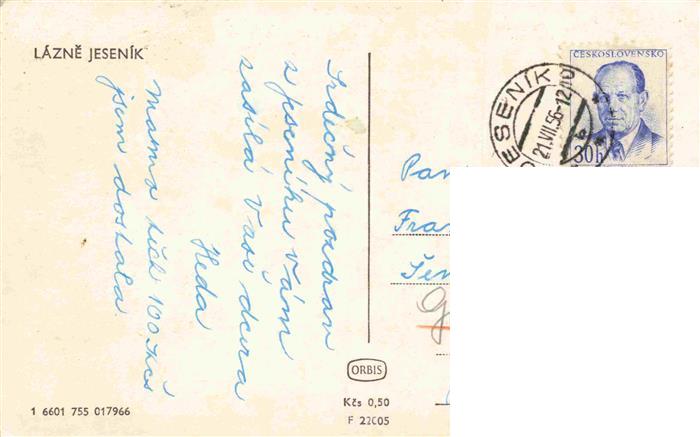 LÁZNĚ JESENÍK
Srdečný pozdrav
z Jeseníku Vám
zasílá Vaše dcera
Heda
Mama těch 100 Kčs
jsem dostala
ČESKOSLOVENSKO
30h
JESENÍK
21.VII.56-12
Pan
Fran
Šen
ORBIS
Kčs 0,50
F 22005
1 6601 755 017966